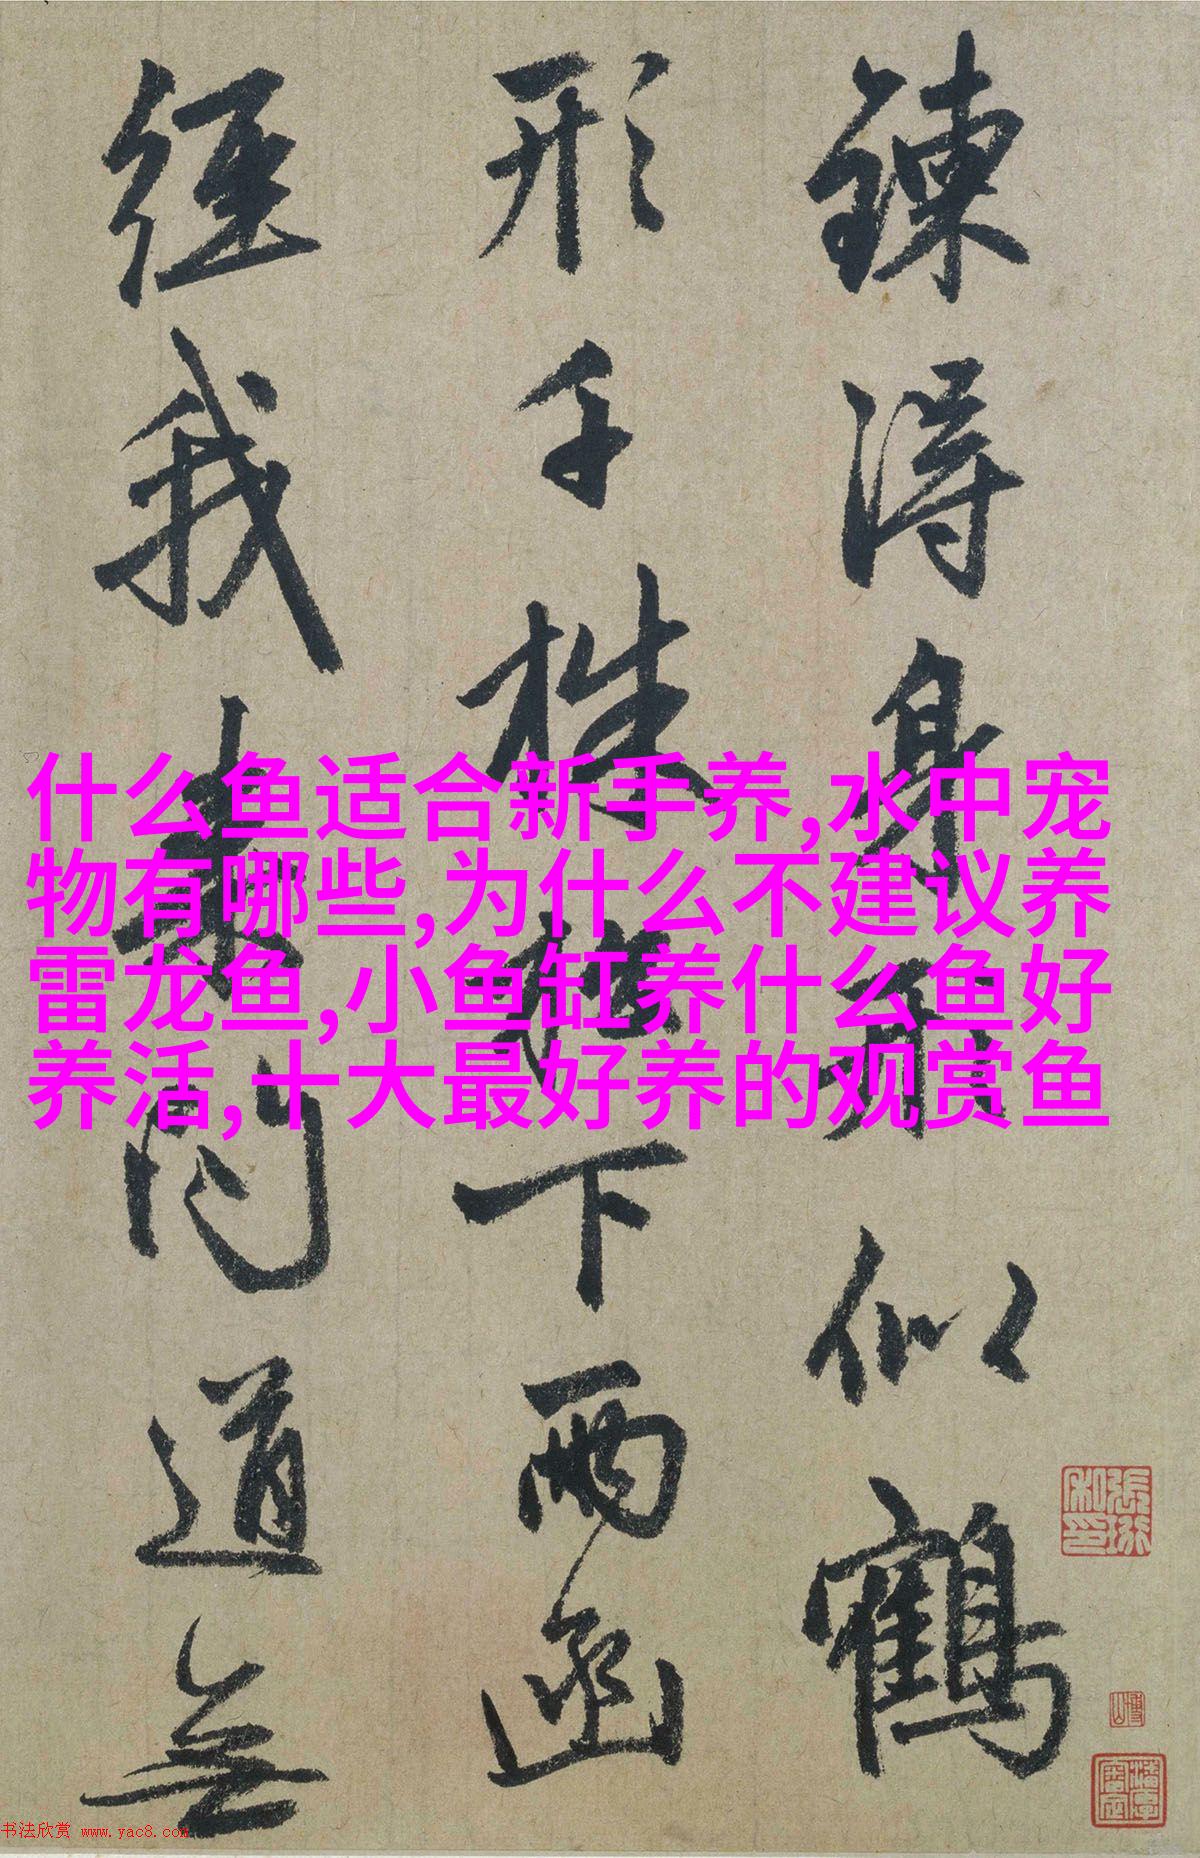 鍊得身形似鶴
形千株松下兩函
經我來問道無
什么鱼适合新手养,水中宠
物有哪些,为什么不建议养
雷龙鱼,小鱼缸养什么鱼好
养活,十大最好养的观赏鱼
书法欣赏 www.yac8.com